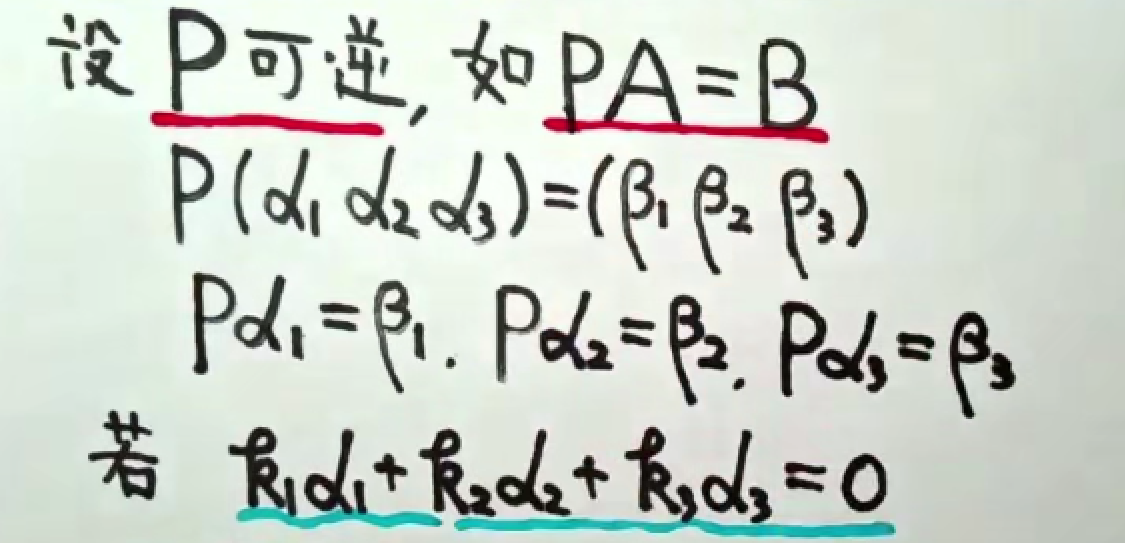 设 P可逆, 如 PA=B
P(α₁ α₂ α₃)=(β₁ β₂ β₃)
Pα₁=β₁. Pα₂=β₂. Pα₃=β₃
若 k₁α₁+k₂α₂+k₃α₃=0